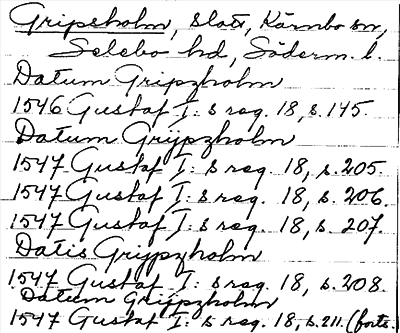 Gripsholm, slott, Kärnbo sn,
Selebo hd, Söderm. l.
Datum Gripzholm
1546 Gustaf I: s reg. 18, s. 145.
Datum Grijpzholm
1547 Gustaf I: s reg. 18, s. 205.
1547 Gustaf I: s reg. 18, s. 206.
1547 Gustaf I: s reg. 18, s. 207.
Datis Grijpzholm
1547 Gustaf I: s reg. 18, s. 208.
Datum Grijpzholm
1547 Gustaf I: s reg. 18, s. 211. (forts.